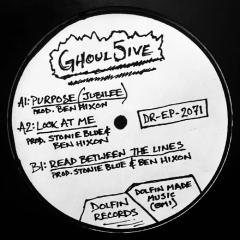 GHOUL5IVE
A1: PURPOSE (JUBILEE)
PROD. BEN HIXON
A2: LOOK AT ME
PROD. STONIE BLUE &
BEN HIXON
DR-EP-2071
B1: READ BETWEEN THE LINES
PROD. STONIE BLUE & BEN HIXON
DOLFIN
RECORDS
DOLFIN MADE
MUSIC
(BMI)